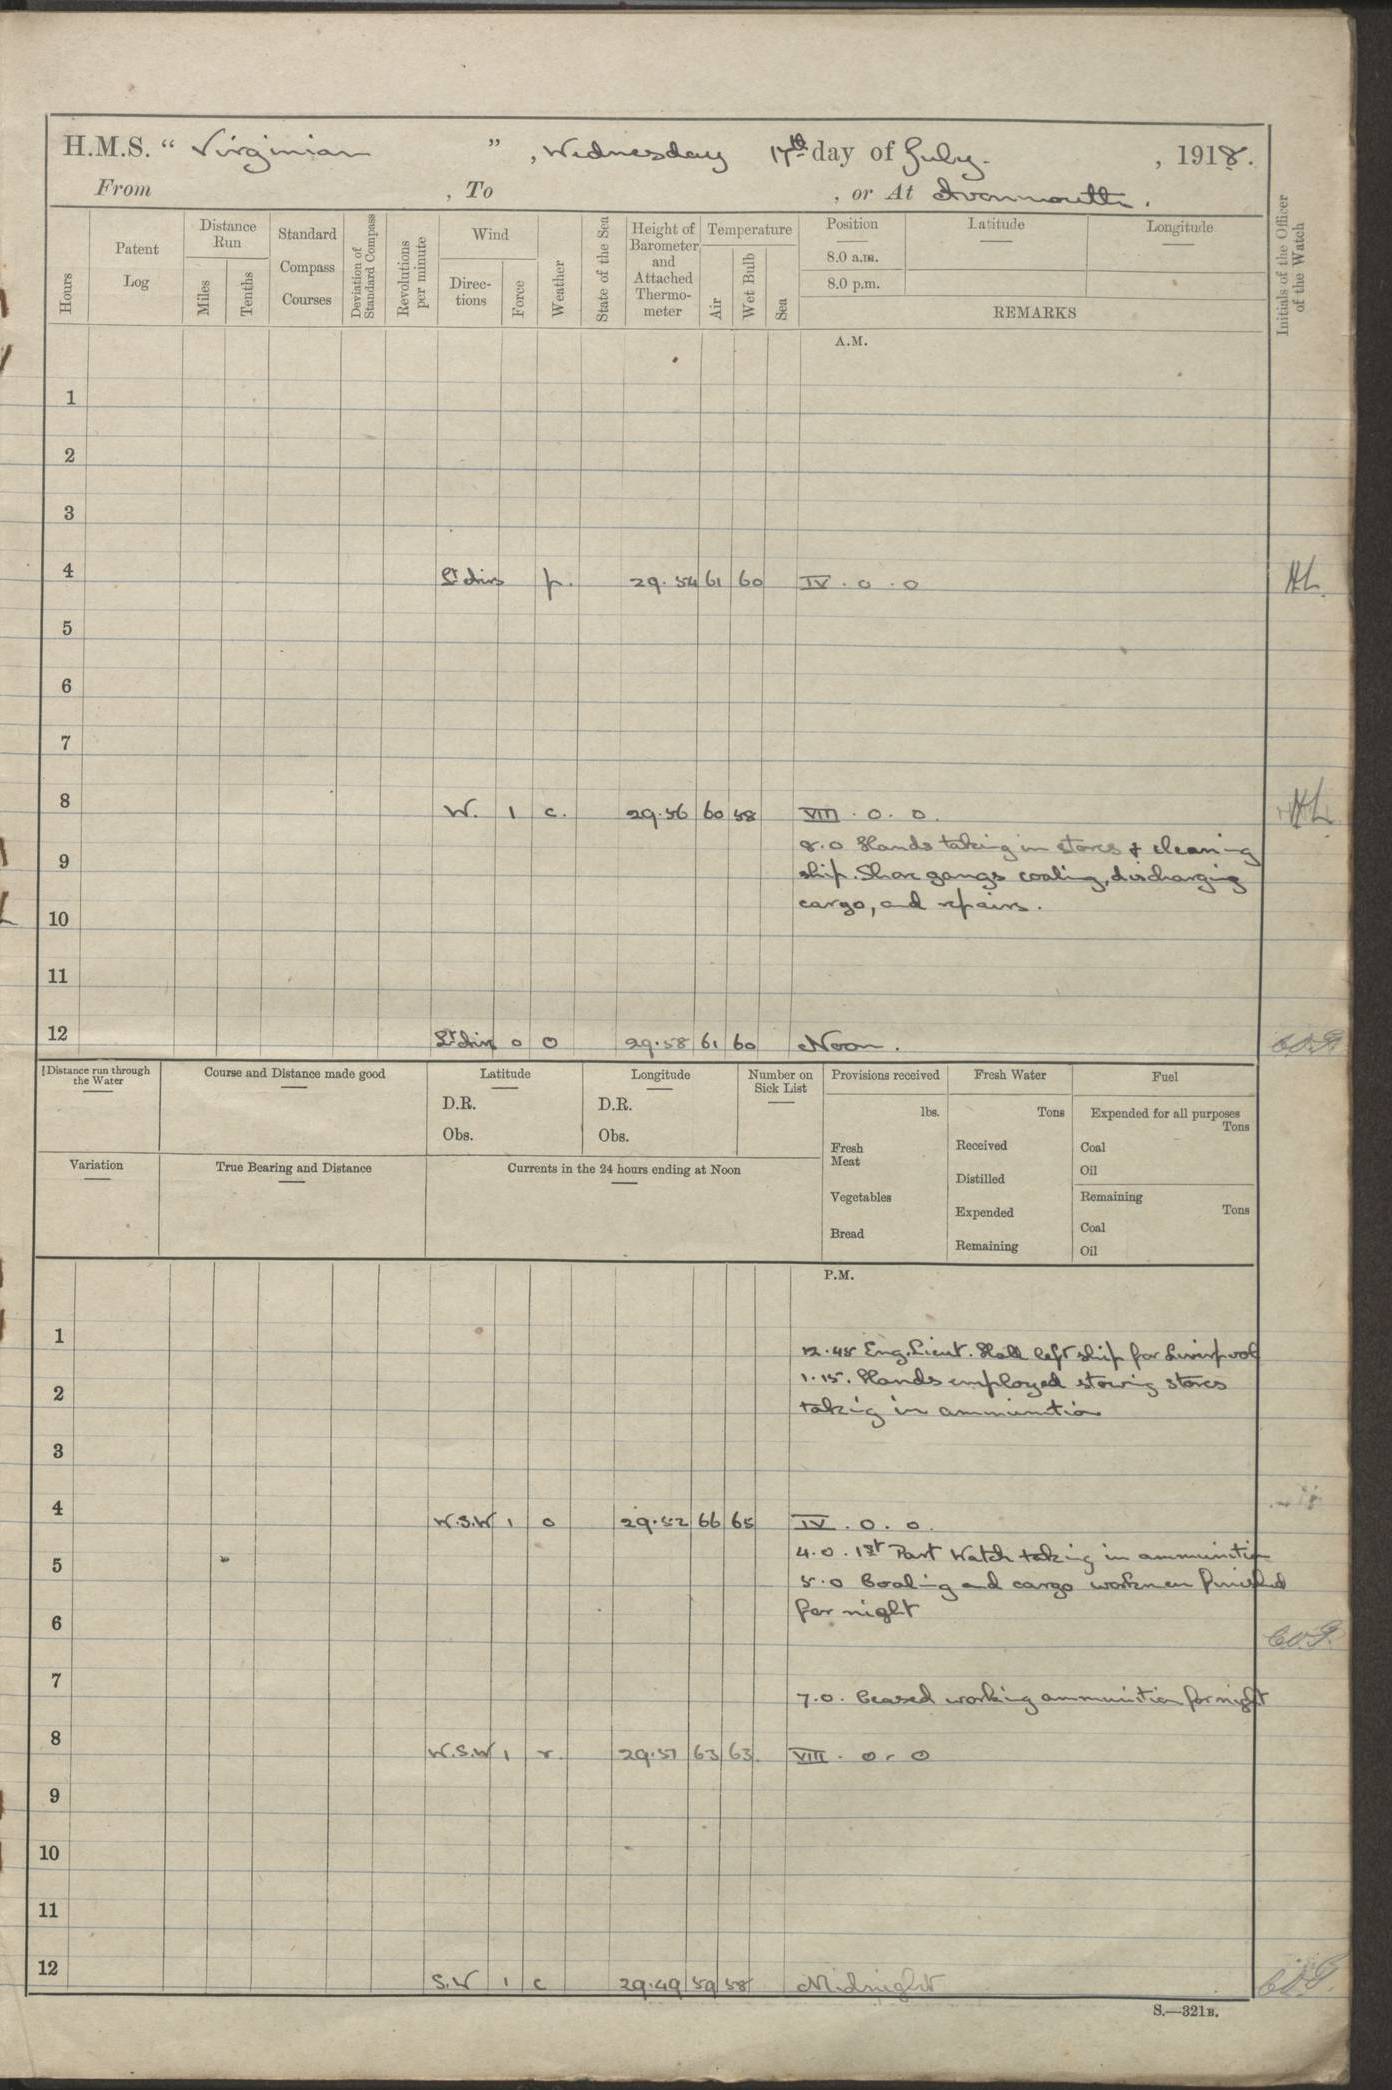 H.M.S. “ Virginian ” , Wednesday 17th day of July. , 1918.
From , To , or At Avonmouth.
Hours
Patent Log
Distance Run
Miles
Tenths
Standard Compass Courses
Deviation of Standard Compass
Revolutions per minute
Wind
Direc-tions
Force
Weather
State of the Sea
Height of Barometer and Attached Thermo-meter
Temperature
Air
Wet Bulb
Sea
Position
8.0 a.m.
8.0 p.m.
Latitude
Longitude
REMARKS
Initials of the Officer of the Watch
A.M.
1
2
3
4 Lt airs p. 29.54 61 60 IV . 0 . 0 HL.
5
6
7
8 W. 1 c. 29.56 60 58 VIII . 0 . 0. HL
8.0 Hands taking in stores & cleaning
9 ship. Shore gangs coaling, discharging
10 cargo, and repairs.
11
12 Lt airs 0 0 29.58 61 60 Noon.
Distance run through the Water
Course and Distance made good
Latitude
D.R.
Obs.
Longitude
D.R.
Obs.
Number on Sick List
Provisions received
lbs.
Fresh Meat
Vegetables
Bread
Fresh Water
Tons
Received
Distilled
Expended
Remaining
Fuel
Expended for all purposes
Tons
Coal
Oil
Remaining
Tons
Coal
Oil
Variation
True Bearing and Distance
Currents in the 24 hours ending at Noon
P.M.
1
12.45 Eng. Lieut. Hall left ship for Liverpool
1.15. Hands employed stowing stores
2 taking in ammunition
3
4 W.S.W 1 o 29.52 66 65 IV . 0 . 0.
4.0. 1st Part Watch taking in ammunition
5 5.0 Coaling and cargo workmen finished
6 for night
7 7.0. Ceased working ammunition for night
8 W.S.W 1 r. 29.51 63 63. VIII . 0 . 0
9
10
11
12 S.W 1 c 29.49 59 58 Midnight
S.—321B.